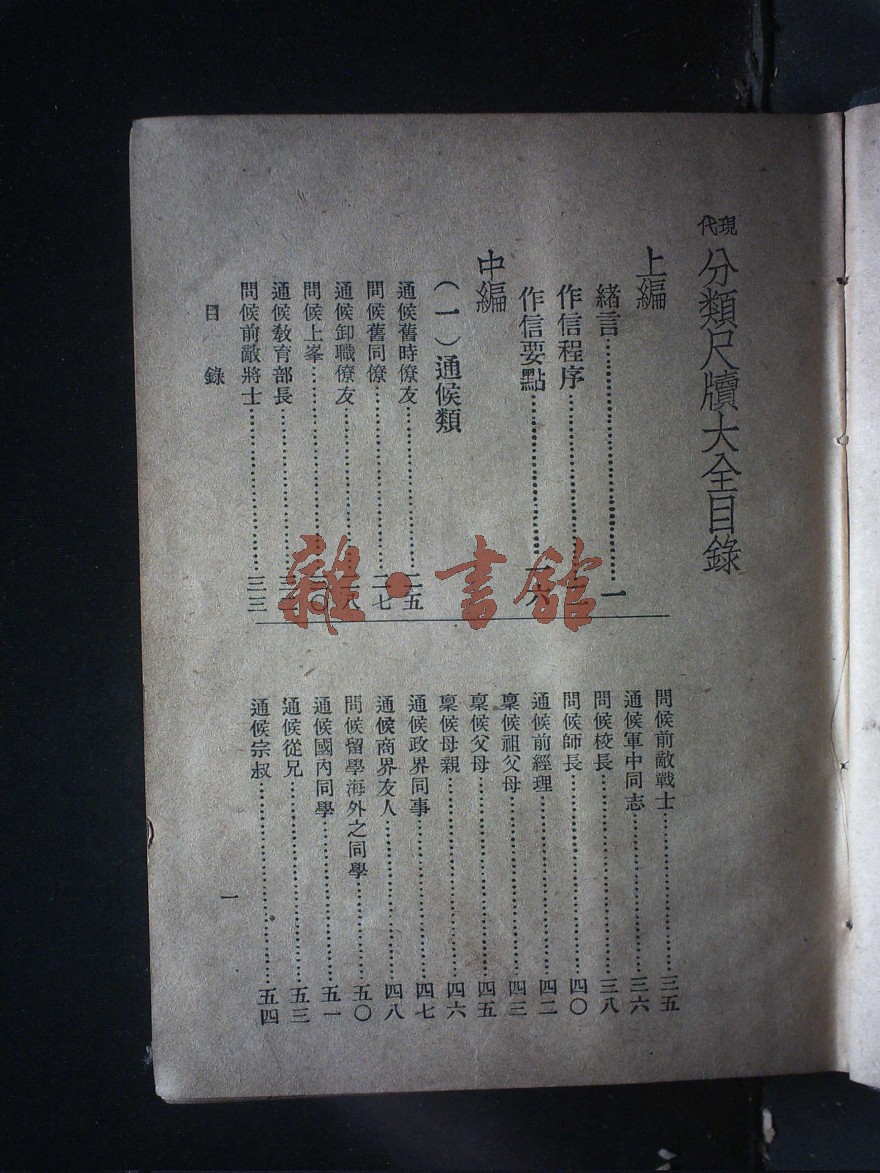 現代分類尺牘大全目錄
上編
緒言…………一
作信程序…………
作信要點…………一六
中編
（一）通候類
通候舊時僚友…………二五
問候舊同僚…………二七
通候卸職僚友…………二八
問候上峯…………三〇
通候敎育部長…………三二
問候前敵將士…………三三
問候前敵戰士…………三五
通候軍中同志…………三六
問候校長…………三八
問候師長…………四〇
通候前經理…………四二
稟候祖父母…………四三
稟候父母…………四五
稟候母親…………四六
通候政界同事…………四七
通候商界友人…………四八
問候留學海外之同學…………五〇
通候國內同學…………五一
通候從兄…………五三
通候宗叔…………五四
目錄
一
雜·書館